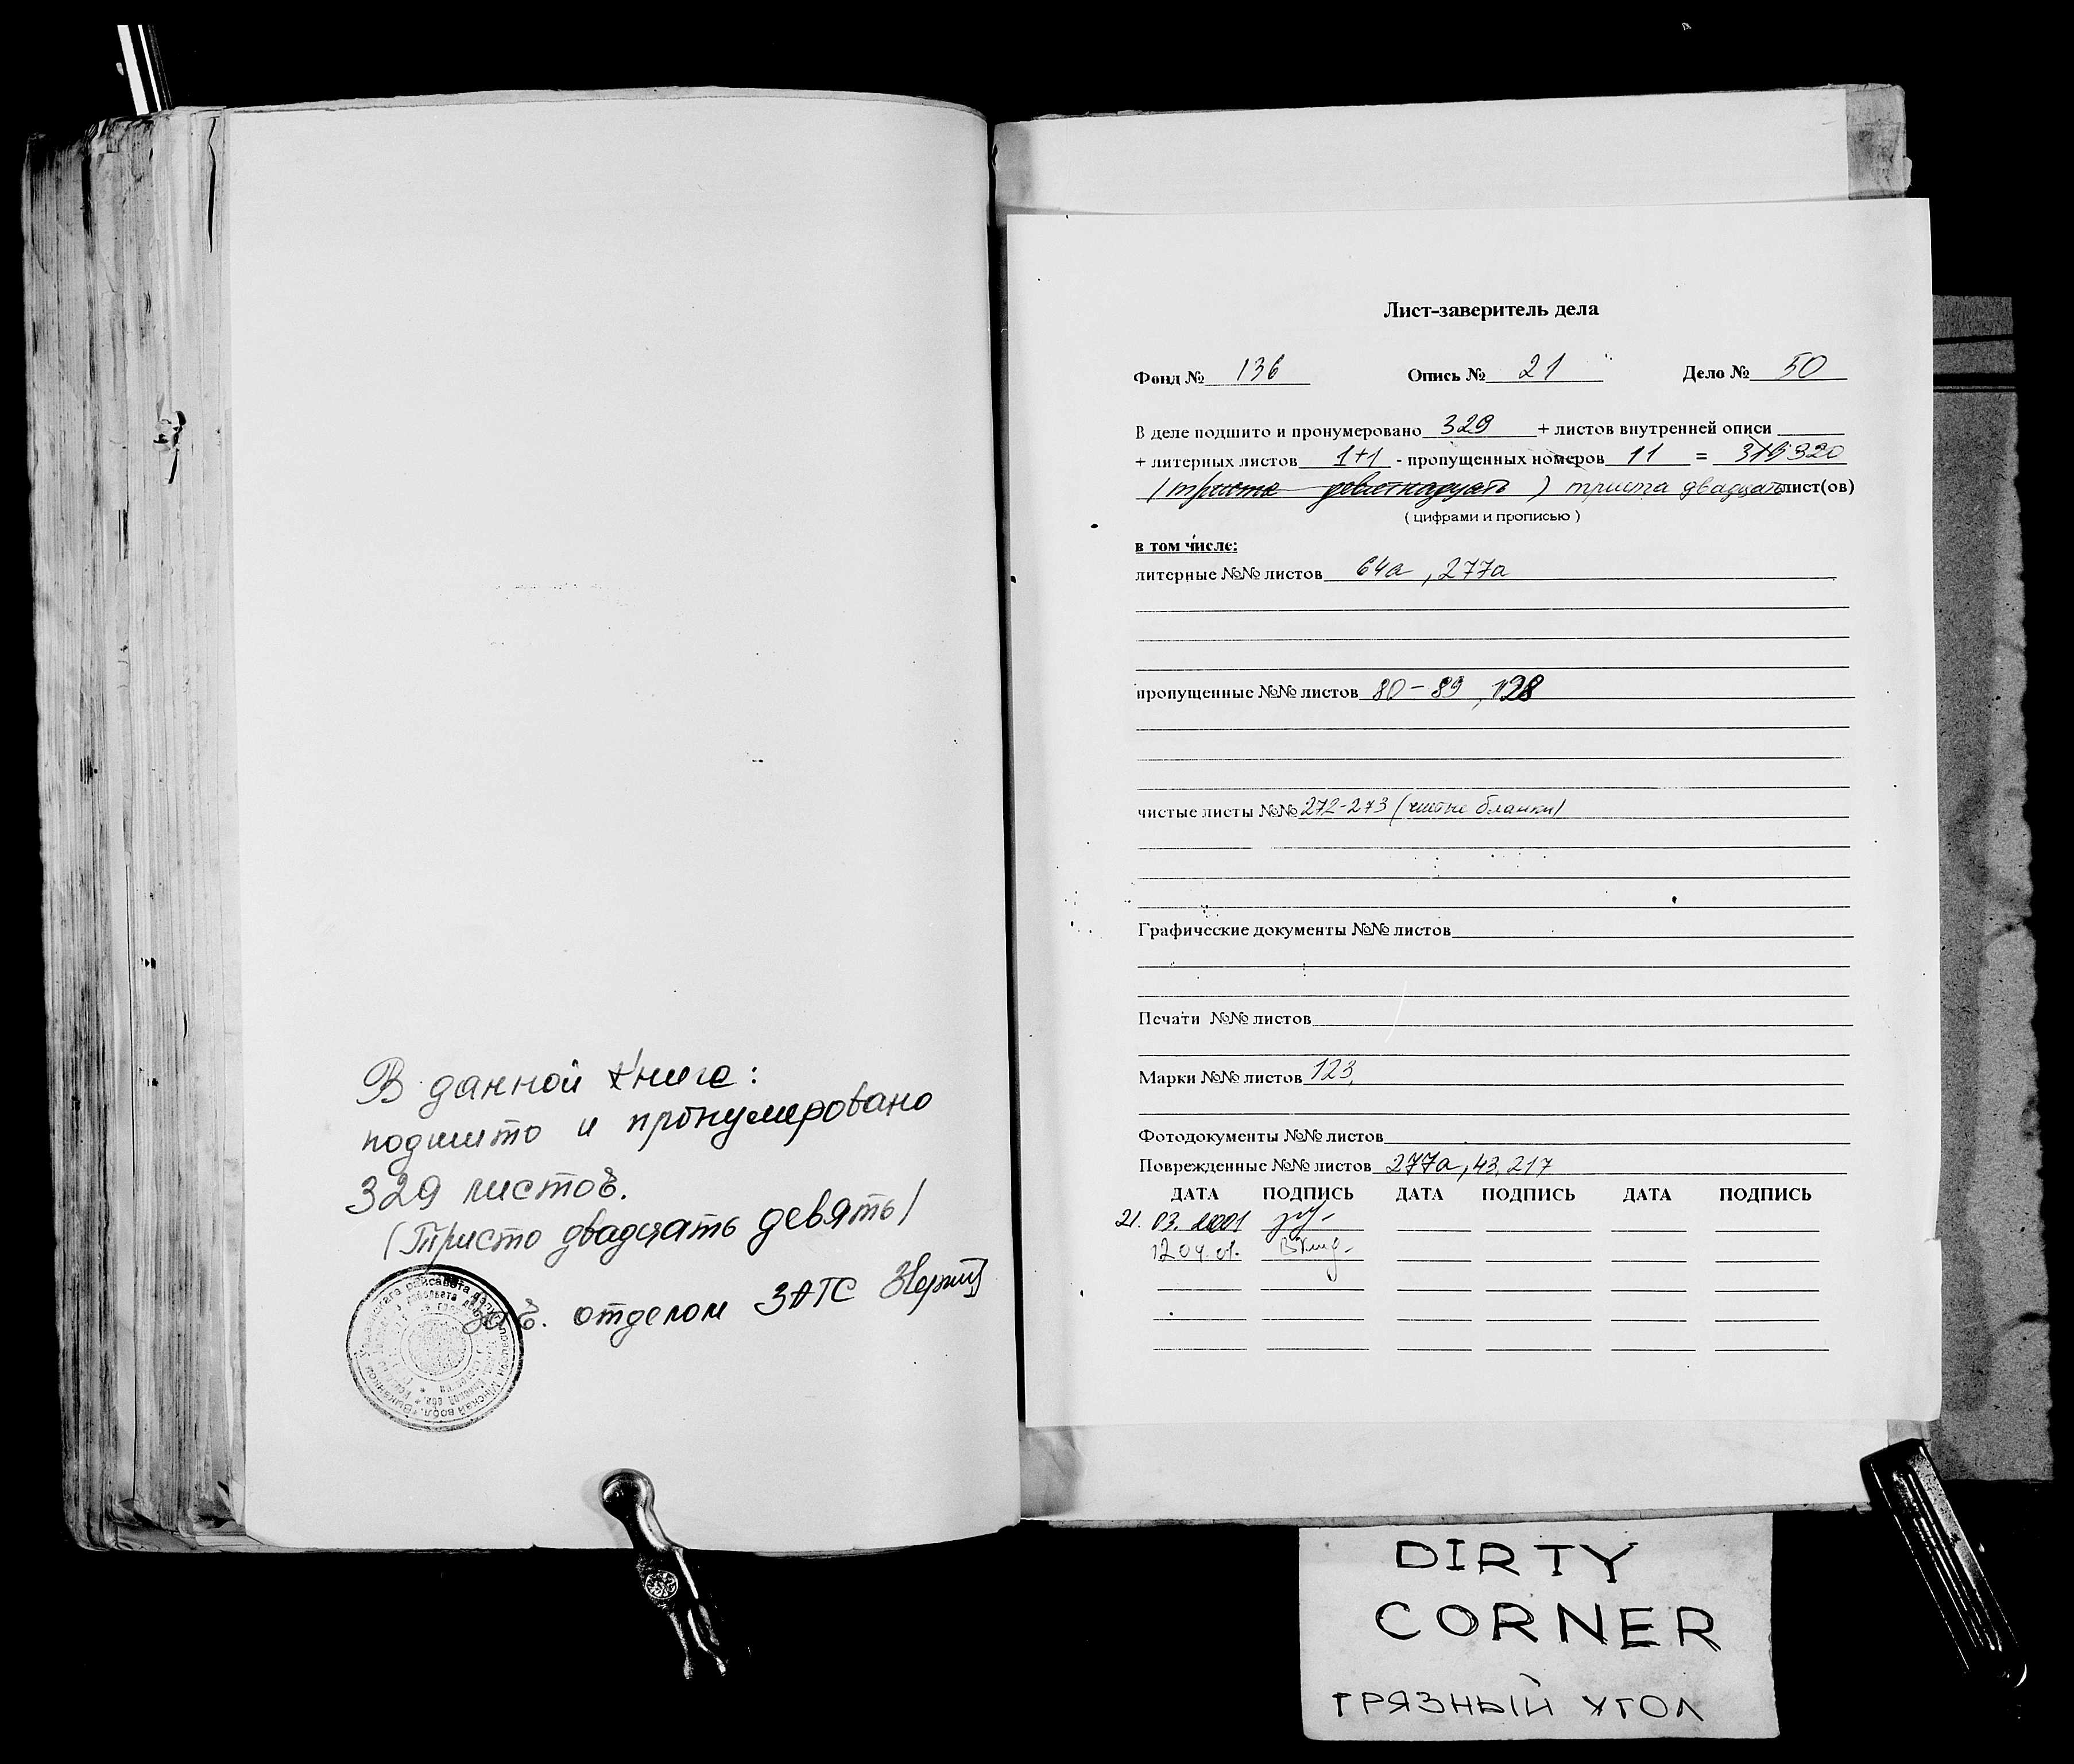 В данной книге:
подшито и пронумеровано
329 листов.
(Тристо двадцать девять)
Зав. отделом ЗАГС
Лист-заверитель дела
Фонд № 136 Опись № 21 Дело № 50
В деле подшито и пронумеровано 329 + листов внутренней описи
+ литерных листов 1+1 - пропущенных номеров 11 = 319 320
(триста девятнадцать) триста двадцать лист(ов)
( цифрами и прописью )
в том числе:
литерные №№ листов 64а, 277а
пропущенные №№ листов 80-89, 128
чистые листы №№ 272-273 ( бланки)
Графические документы №№ листов
Печати №№ листов
Марки №№ листов 123,
Фотодокументы №№ листов
Поврежденные №№ листов 277а, 43, 217
ДАТА ПОДПИСЬ ДАТА ПОДПИСЬ ДАТА ПОДПИСЬ
21. 03. 2001
12.04.01.
DIRTY
CORNER
ГРЯЗНЫЙ УГОЛ